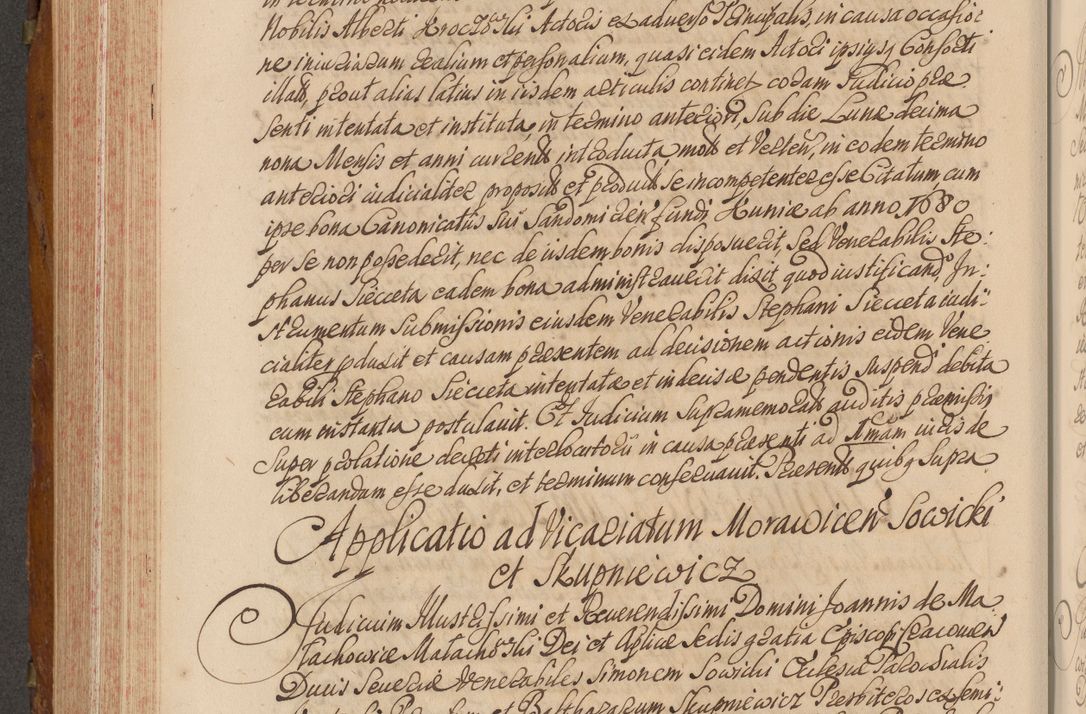 Nobilis Alberti Kroczowski Actoris ex adverso Principalis, in causa occasio:
ne iniuriarum realium et personalium, quasi eidem Actori ipsiusq Consorti
illaŧ, prout alias latius in iisdem articulis continet coram Judicio præ
senti intentata et instituta, in termino anteriori, sub die Lunæ decima
nona Mensis et anni currenŧ introducta, moŧ et Verteñ, in eodem termino
anteriori iudicialiter proposiŧ et produciŧ se incompetenter esse Citatum, cum
ipse bona Canonicatus sui Sandomirień fundi Kunice ab anno 1680
per se non possederit, nec de iisdem bonis disposuerit, sed Venerabilis Ste:
phanus Siecceta eadem bona administraverit dixit quod iustificand In:
strumentum submissionis eiusdem Venerabilis Stephani Siecceta iudi:
cialiter pduxit et causam præsentem ad decisionem actionis eidem Vene
rabili Stephano Siecceta intentatæ et indecisæ pendentis suspendi debita
cum instantia postulavit. Et Judicium supramemoraŧ auditis præmissis
super prolatione decreti interlocutorii in causa præsenti ad 1mam iuris de
liberandum esse duxit, et terminum conservavit. Præsenŧ quibq supra
Applicatio ad Vicariatum Morawiceñ Sowicki
et Skupniewicz
Judicium Illustrissimi et Reverendissimi Domini Joannis de Ma
łachowice Małachowski Dei et Aplicæ Sedis gratia Episcopi Cracovień
Ducis Severiæ Venerabiles Simonem Sowicki Ecclesiæ Parochialis
et Balthazarum Skupniewicz Presbiteros